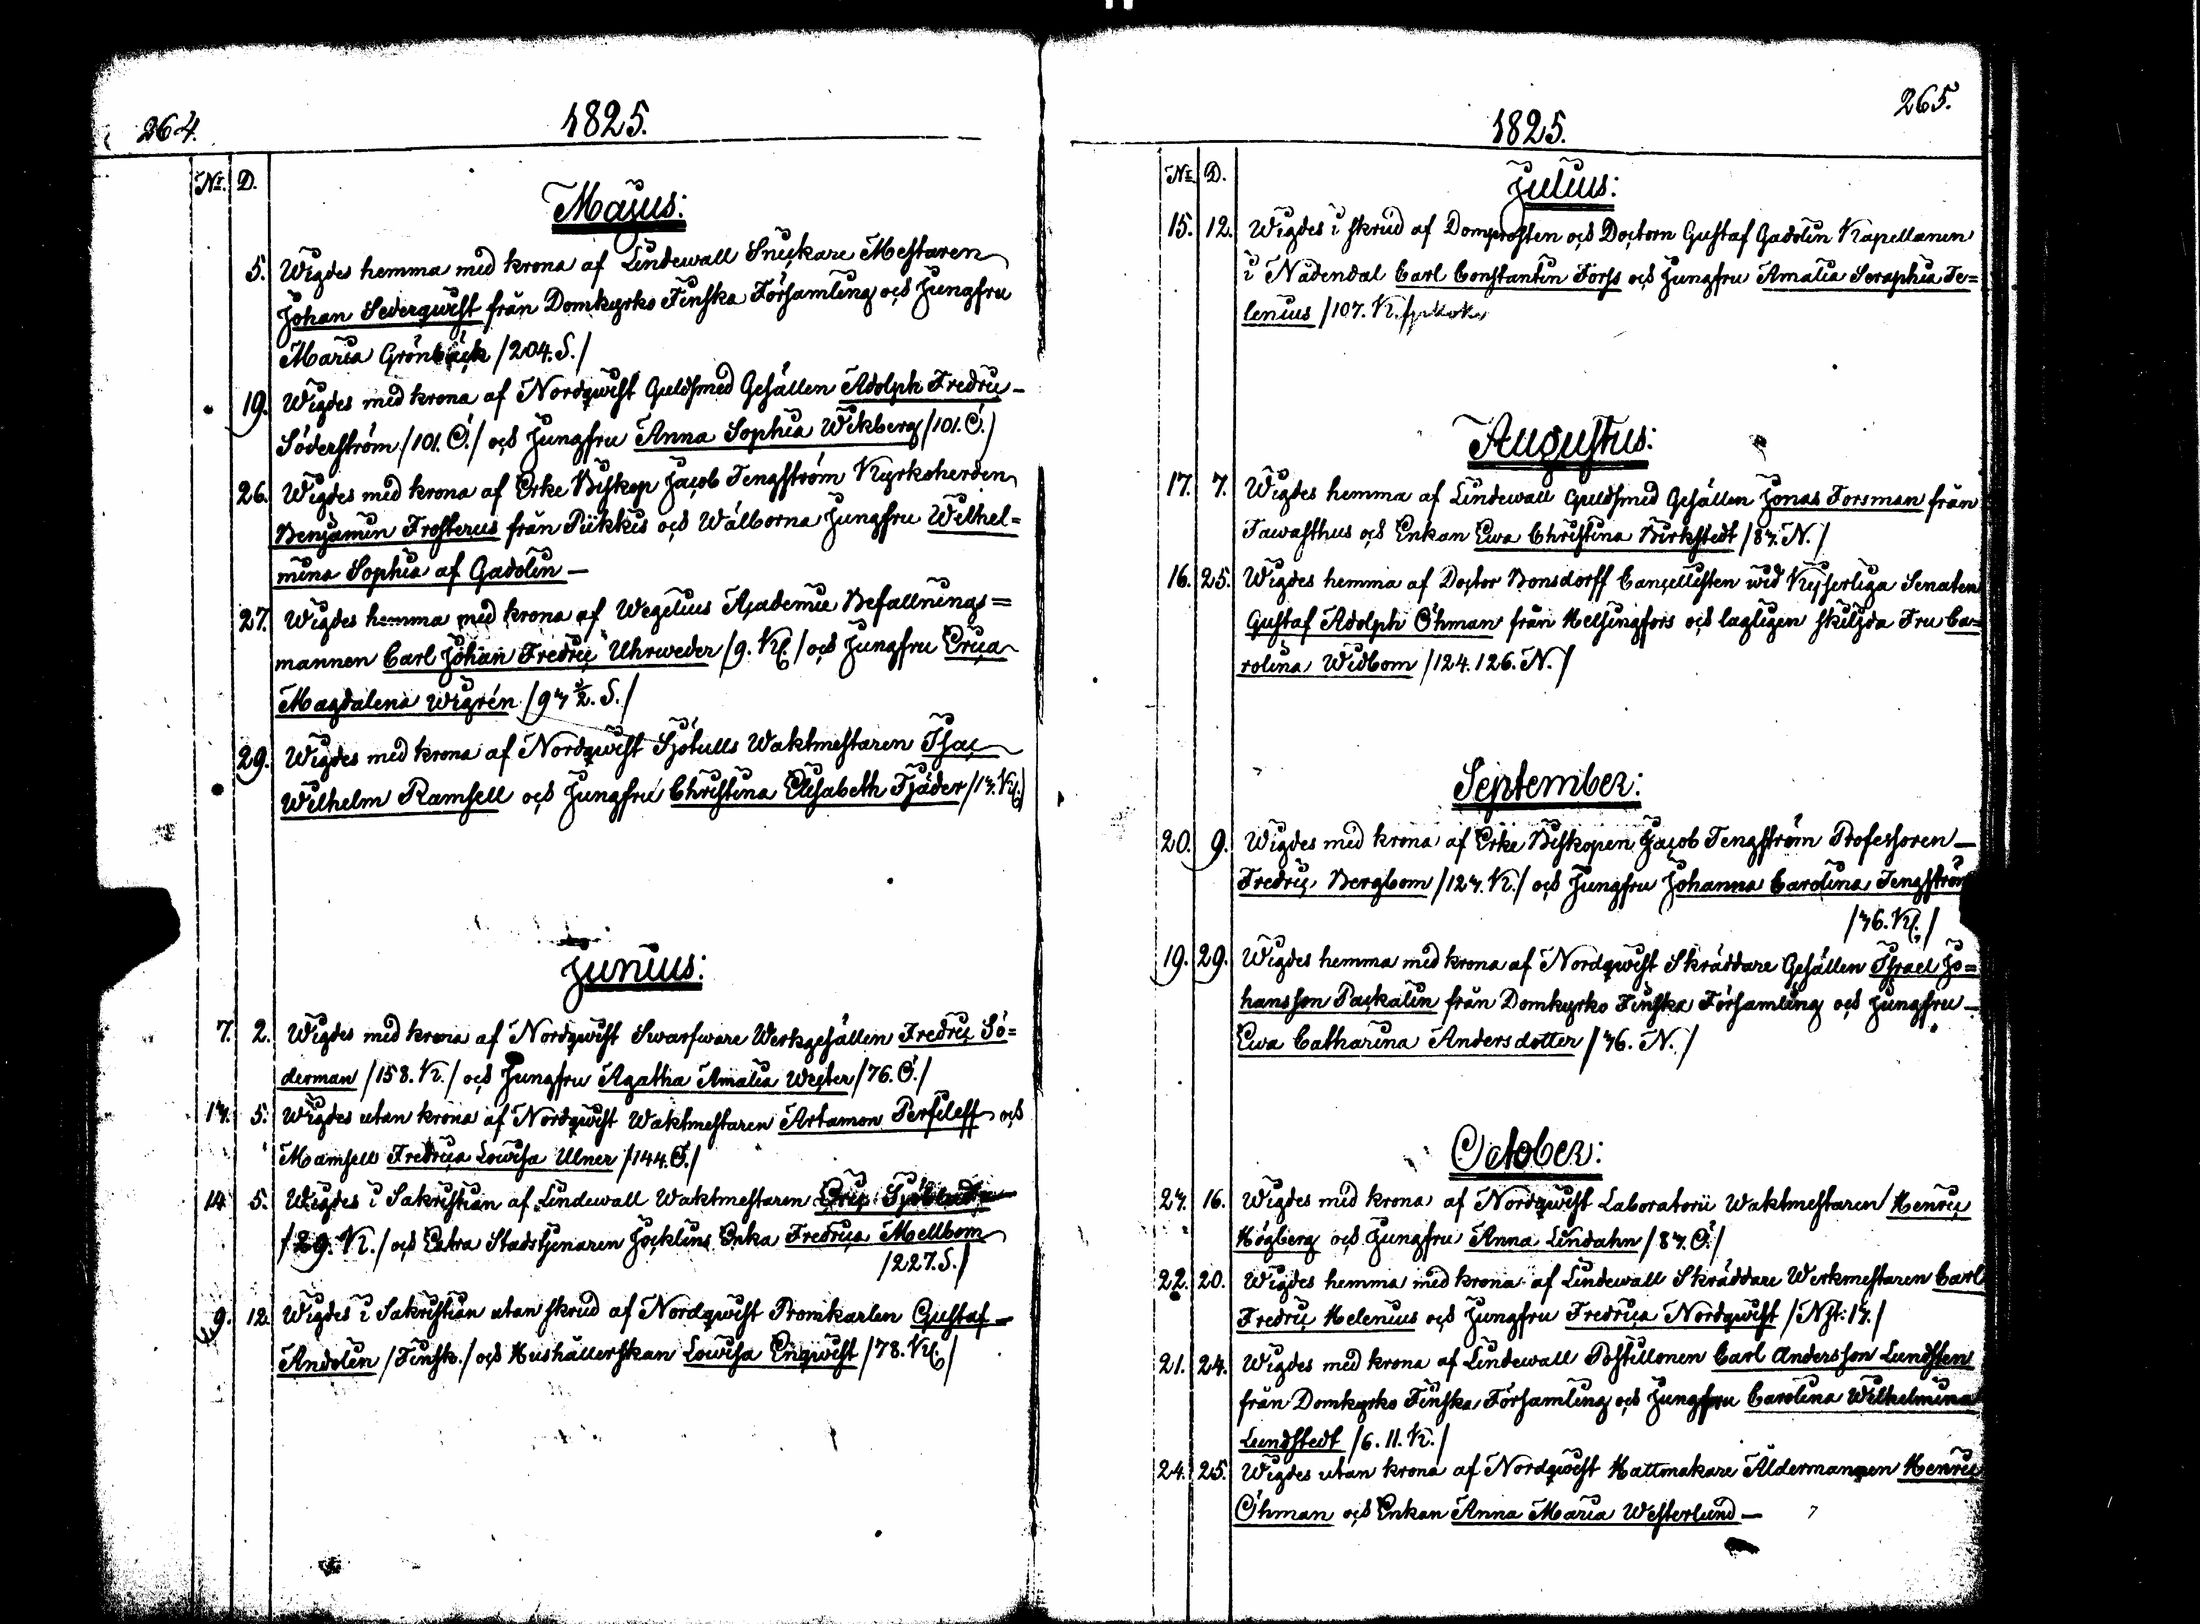 264.
1825.
No. D.
Majus:
5. Wigdes hemma med krona af Lindewall Snickare Mestaren
Johan Sederqwist från Domkyrko Finska Församling och Jungfru
Maria Grönbäck /204. S./
19. Wigdes med krona af Nordqwist Guldsmed Gesällen Adolph Fredric
Söderström /101. Ö./ och Jungfru Anna Sophia Wikberg /101. Ö./
26. Wigdes med krona af Erke Biskop Jacob Tengström Kyrkoherden
Benjamin Frosterus från Piikkis och Wälborna Jungfru Wilhel=
mina Sophia af Gadolin —
27. Wigdes hemma med krona af Wegelius Academie Befallnings=
mannen Carl Johan Fredric Uhrweder /9. Kl./ och Jungfru Erica
Magdalena Wigrén /97 1/2. S./
29. Wigdes med krona af Nordqwist Sjötulls Waktmestaren Isac
Wilhelm Ramsell och Jungfru Christina Elisabeth Fjäder /17. Kl./
Junius:
7. 2. Wigdes med krona af Nordqwist Swarfware Werkgesällen Fredric Sö=
derman /158. K./ och Jungfru Agatha Amalia Wecter /76. Ö./
17. 5. Wigdes utan krona af Nordqwist Waktmestaren Artamon Perfileff och
Mamsell Fredrica Lowisa Ulner /144. Ö./
14 5. Wigdes i Sakristian af Lindewall Waktmestaren Eric
/29. K./ och Extra Stadstjenaren Jocklins Enka Fredrica Mellbom
/227. S./
9. 12. Wigdes i Sakristian utan skrud af Nordqwist Promkarlen Gustaf
Andolin /Finsk./ och Hushållerskan Lowisa Enqwist /78. Kl./
265.
1825.
No. D.
Julius:
15. 12. Wigdes i skrud af Domprosten och Doctorn Gustaf Gadolin Kapellanen
i Nådendal Carl Constantin Forss och Jungfru Amalia Seraphia Te=
lenius /107. K.
Augustus:
17. 7. Wigdes hemma af Lindewall Guldsmed Gesällen Jonas Forsman från
Tawasthus och Enkan Ewa Christina Birkstedt /87. N./
16. 25. Wigdes hemma af Doctor Bonsdorff Cancellisten wid Kejserliga Senaten
Gustaf Adolph Öhman från Helsingfors och lagligen skiljda Fru Ca=
rolina Widbom /124. 126. N./
September:
20. 9. Wigdes med krona af Erke Biskopen Jacob Tengström Professoren —
Fredric Bergbom /127. K./ och Jungfru Johanna Carolina Tengström
/76. Kl./
19. 29. Wigdes hemma med krona af Nordqwist Skräddare Gesällen Israel Jo=
hansson Packalin från Domkyrko Finska Församling och Jungfru —
Ewa Catharina Andersdotter /76. N./
October:
27. 16. Wigdes med krona af Nordqwist Laboratorii Waktmestaren Henric
Högberg och Jungfru Anna Lindahn /87. Ö./
22. 20. Wigdes hemma med krona af Lindewall Skräddare Werkmestaren Carl
Fredric Helenius och Jungfru Fredrica Nordqwist /Nst: 17./
21. 24. Wigdes med krona af Lindewall Postillonen Carl Andersson Lundsten
från Domkyrko Finska Församling och Jungfru Carolina Wilhelmina
Lundstedt /6. 11. K./
24. 25. Wigdes utan krona af Nordqwist Hattmakare Åldermannen Henric
Öhman och Enkan Anna Maria Westerlund —